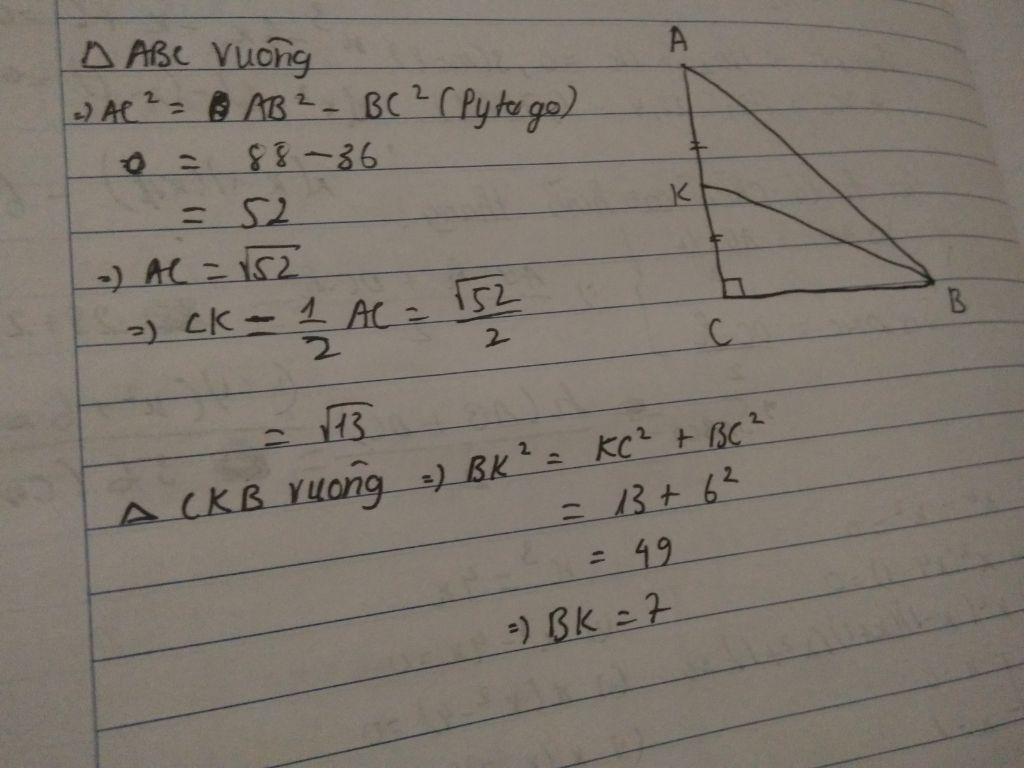 Δ ABC vuông
=) AC² = AB² - BC² (Pytago)
= 88 - 36
= 52
=) AC = √52
=) CK = 1/2 AC = √52/2
= √13
Δ CKB vuông =) BK² = KC² + BC²
= 13 + 6²
= 49
=) BK = 7
A
K
C
B